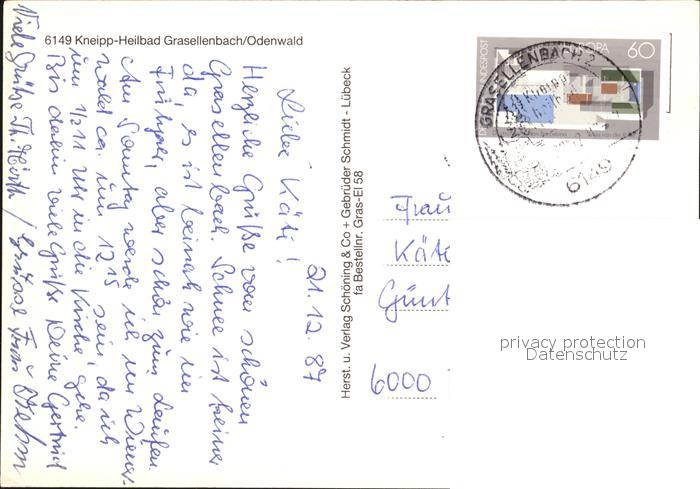 6149 Kneipp-Heilbad Grasellenbach/Odenwald
21.12.87
Liebe Käti!
Herzliche Grüße vom schönen
Grasellenbach. Schnee ist keiner
da, es ist beinah wie im
Frühjahr, aber schön zum Laufen.
Am Sonntag werde ich um
wald ca. um 12 15 sein, da ich
um 1/2 11 Uhr in die Kirche gehe.
Bis dahin viele Grüße Deine Gertrud
Viele Grüße Th. / Grüsse Frau
Herst. u. Verlag Schöning & Co + Gebrüder Schmidt - Lübeck
fa Bestellnr. Gras-El 58
DEUTSCHE BUNDESPOST
EUROPA
60
GRASELLENBACH 2
6149
Frau
Käte
Günt
6000
privacy protection
Datenschutz